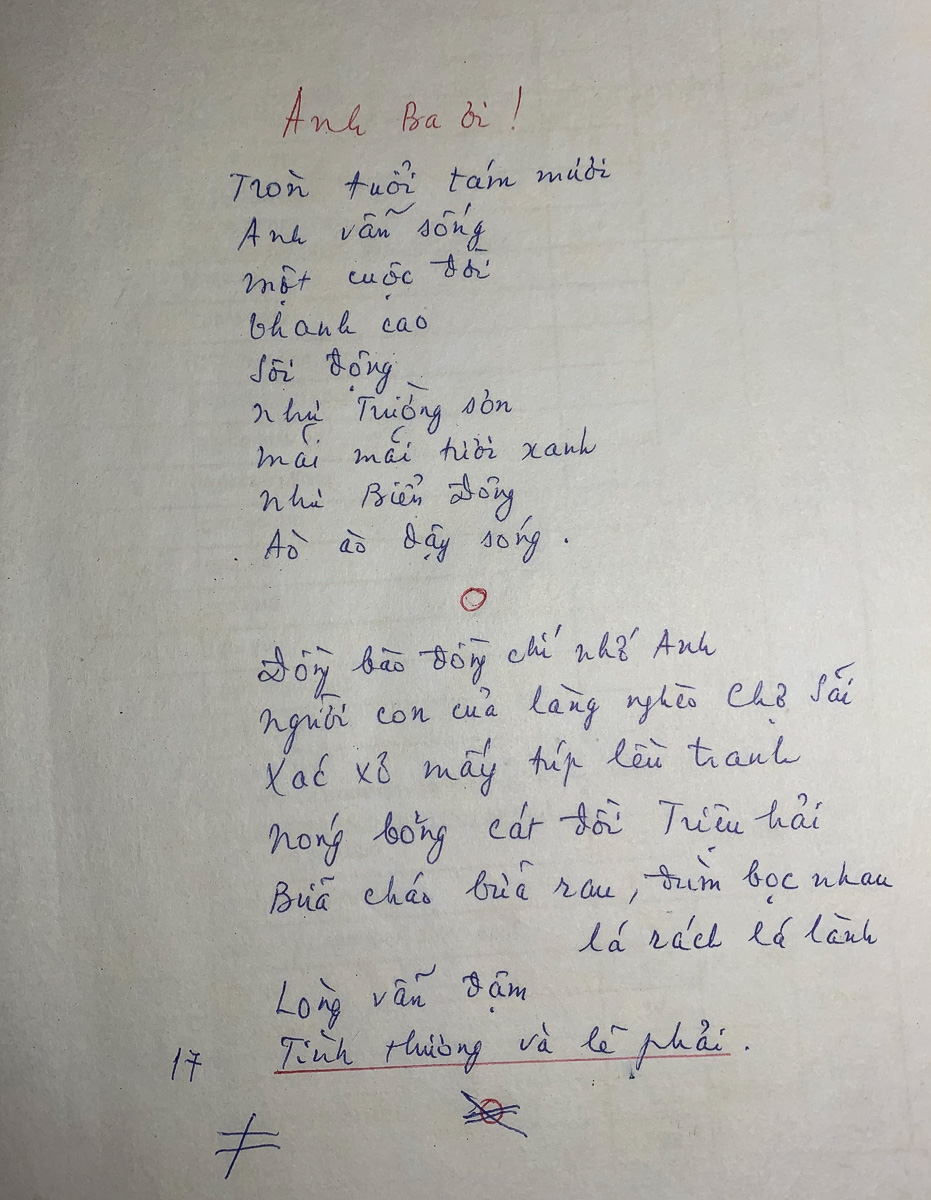 Anh Ba ơi!
Tròn tuổi tám mươi
Anh vẫn sống
một cuộc đời
thanh cao
Sôi động
như Trường sơn
mãi mãi tươi xanh
như Biển Đông
Ào ào dậy sóng.
Đồng bào đồng chí nhớ Anh
người con của làng nghèo Chợ Sãi
Xác xơ mấy túp lều tranh
nóng bỏng cát đồi Triệu hải
Bữa cháo bữa rau, đùm bọc nhau
lá rách lá lành
Lòng vẫn đậm
17 Tình thương và lẽ phải.